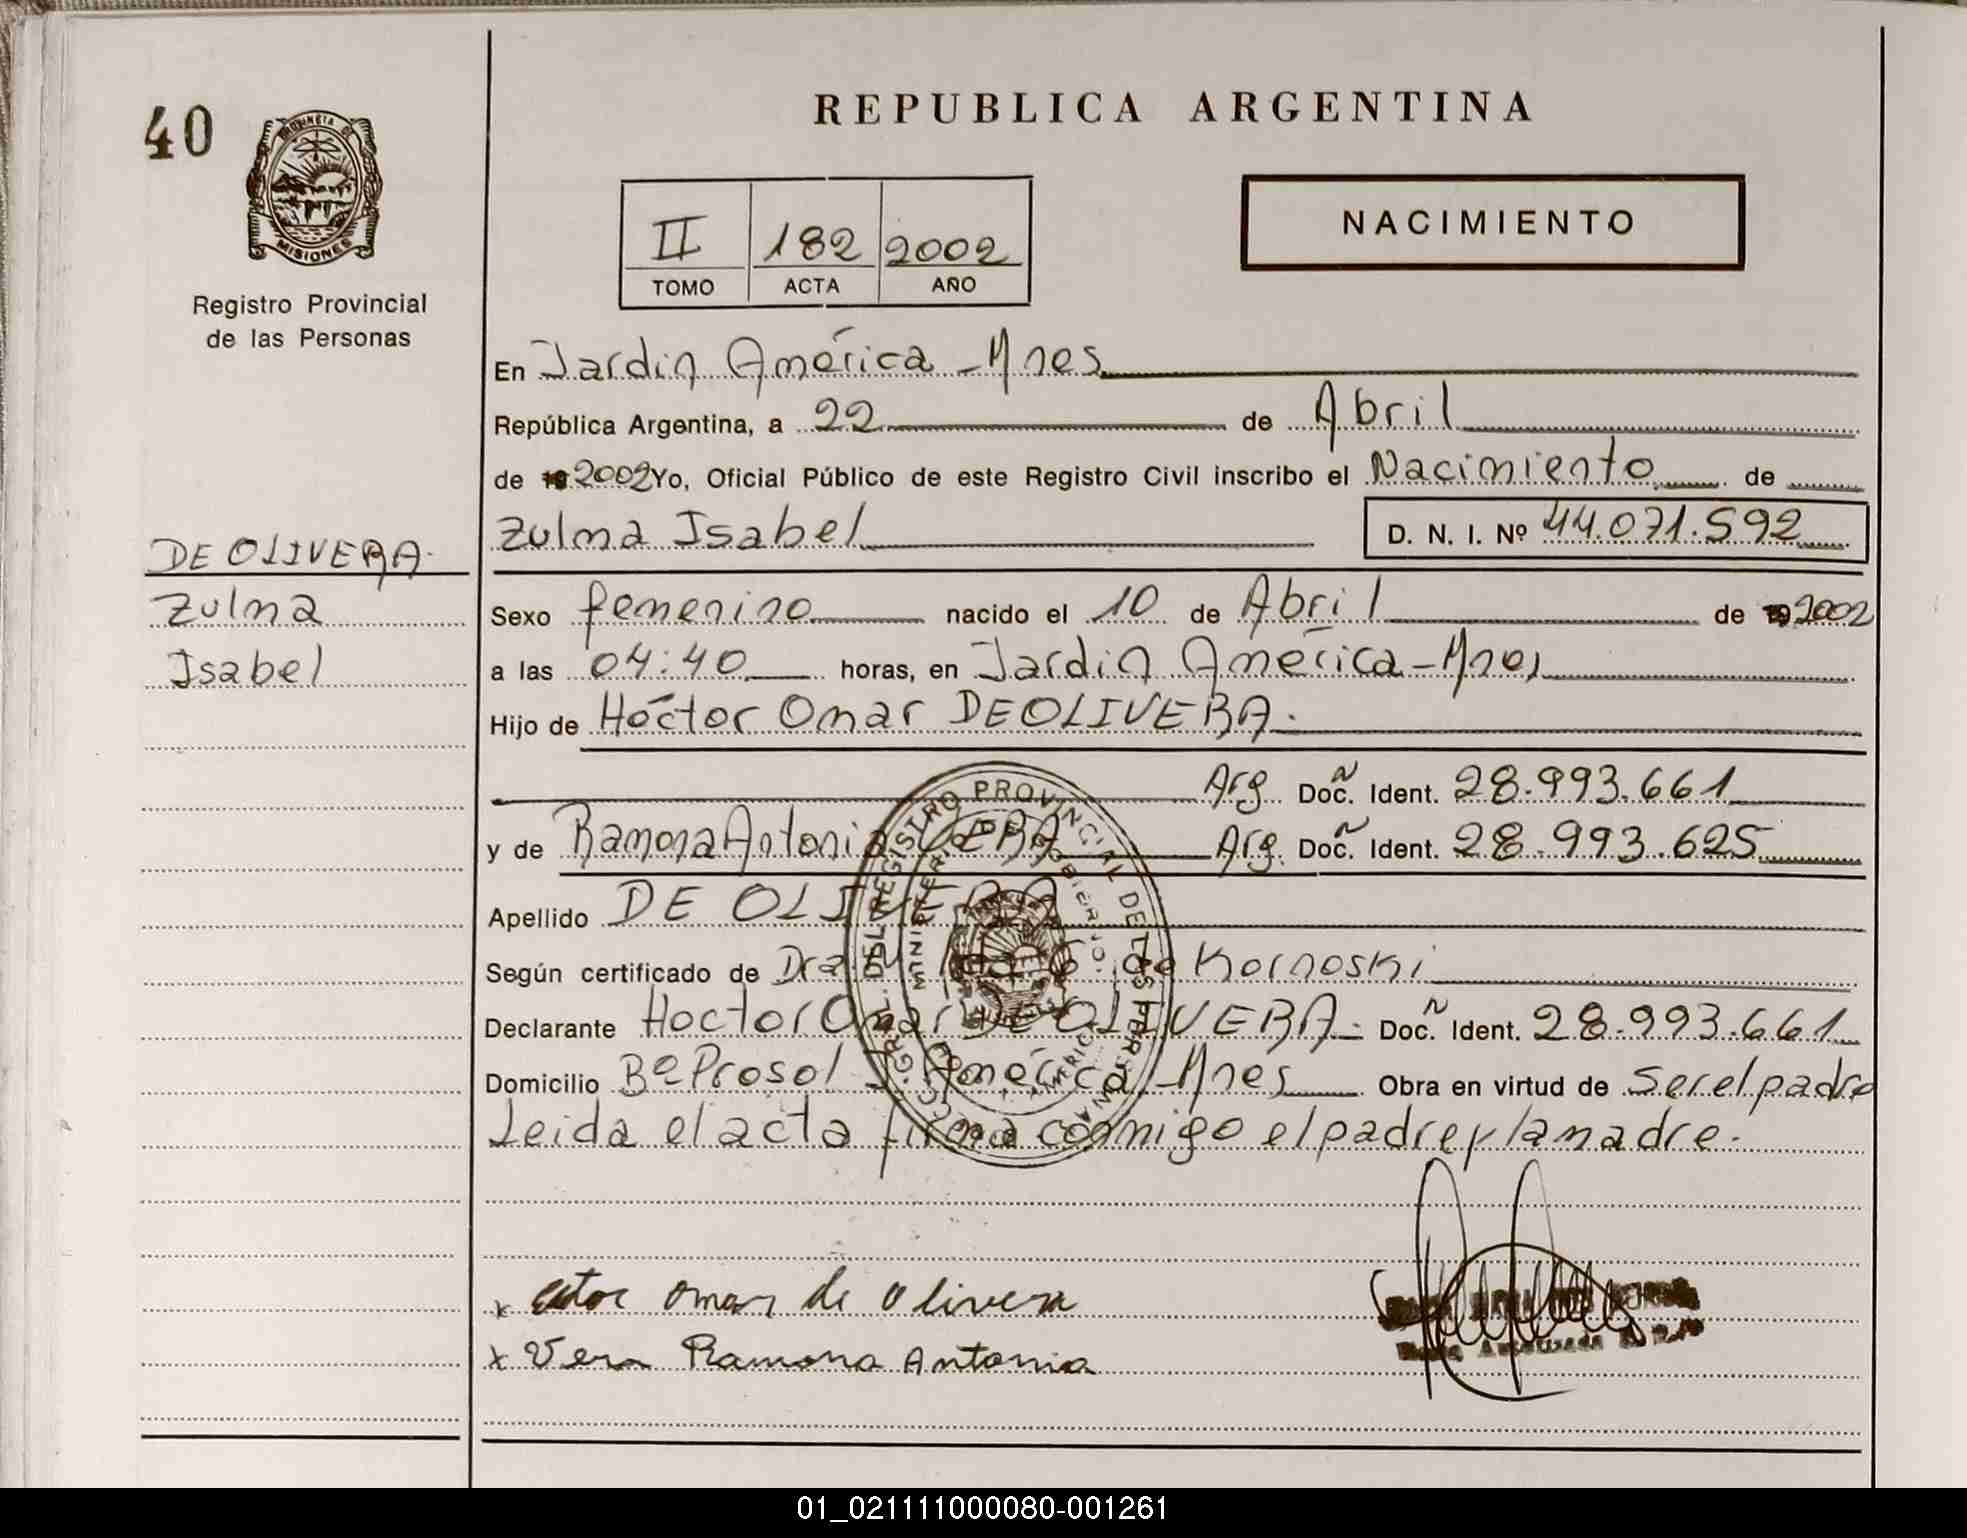 40
PROVINCIA DE
MISIONES
Registro Provincial
de las Personas
DE OLIVERA.
Zulma
Isabel
REPUBLICA ARGENTINA
II 182 2002
TOMO ACTA AÑO
NACIMIENTO
En Jardin América - Mnes
República Argentina, a 22 de Abril
de 19 2002 Yo, Oficial Público de este Registro Civil inscribo el Nacimiento de
Zulma Isabel D. N. I. Nº 44.071.592
Sexo femenino nacido el 10 de Abril de 19 2002
a las 04:40 horas, en Jardin América - Mnes
Hijo de Héctor Omar DE OLIVERA.
Arg. Doc. Ident. 28.993.661
y de Ramona Antonia VERA Arg. Doc. Ident. 28.993.625
Apellido DE OLIVERA
Según certificado de Dra. de Kornoski
Declarante Hector Omar DE OLIVERA. Doc. Ident. 28.993.661
Domicilio Bº Prosol J. América - Mnes Obra en virtud de Ser el padre
Leida el acta firma conmigo el padre y la madre.
REGISTRO PROVINCIAL DE LAS PERSONAS
x Ector Omar de Olivera
x Vera Ramona Antonia
Autorizada
01_021111000080-001261